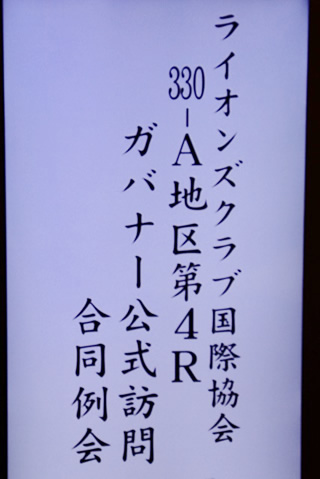 ライオンズクラブ国際協会
330-A地区第4R
ガバナー公式訪問
合同例会